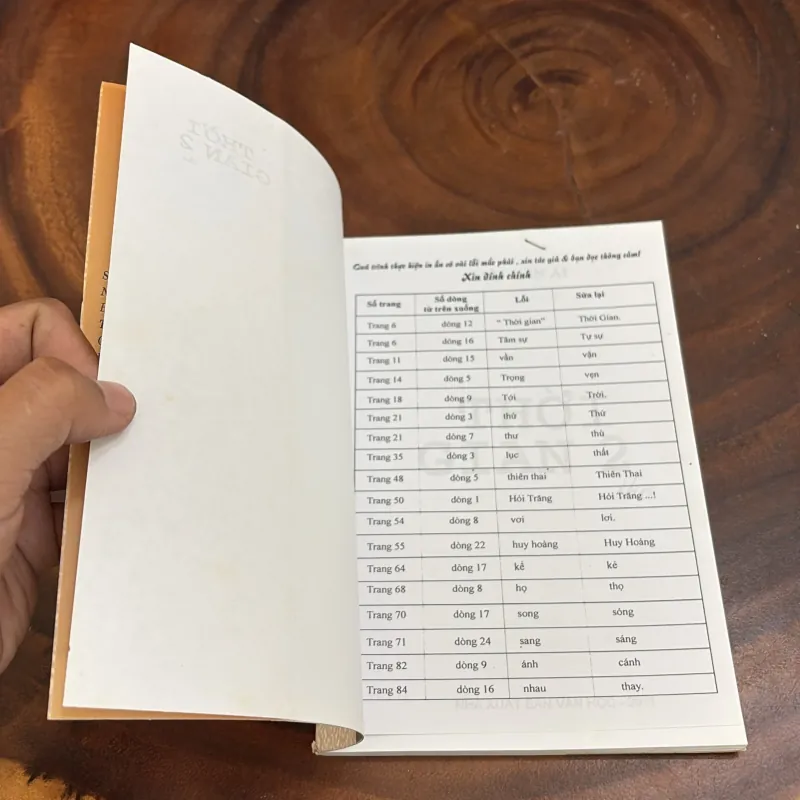 THỜI
GIAN 2
Quá trình thực hiện in ấn có vài lỗi mắc phải , xin tác giả & bạn đọc thông cảm!
Xin đính chính
Số trang Số dòng từ trên xuống Lỗi Sửa lại
Trang 6 dòng 12 “ Thời gian” Thời Gian.
Trang 6 dòng 16 Tâm sự Tự sự
Trang 11 dòng 15 vần vận
Trang 14 dòng 5 Trọng vẹn
Trang 18 dòng 9 Tới Trời,
Trang 21 dòng 3 thử Thứ
Trang 21 dòng 7 thư thù
Trang 35 dòng 3 lục thất
Trang 48 dòng 5 thiên thai Thiên Thai
Trang 50 dòng 1 Hỏi Trăng Hỏi Trăng ...!
Trang 54 dòng 8 vơi lơi.
Trang 55 dòng 22 huy hoàng Huy Hoàng
Trang 64 dòng 17 kể kẻ
Trang 68 dòng 8 họ thọ
Trang 70 dòng 17 song sông
Trang 71 dòng 24 sang sáng
Trang 82 dòng 9 ánh cánh
Trang 84 dòng 16 nhau thay.
THỜI
GIAN 2